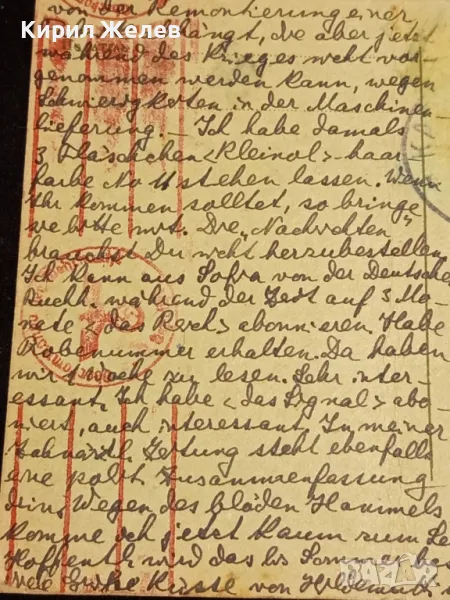 Кирил Желев
von der Remontierung einer
hängt, die aber jetzt
während des Krieges nicht vor-
genommen werden kann, wegen
Schwierigkeiten in der Maschinen-
lieferung. – Ich habe damals
3 Fläschchen <Kleinol> haar
farbe No 11 stehen lassen. Wenn
Ihr kommen solltet, so bringe
sie bitte mit. Die „Nachrichten“
brauchst Du nicht herzubestellen
Ich kann aus Sofia von der Deutschen
Buchh. während der Zeit auf 3 Mo-
nate <das Reich> abonnieren. Habe
Probenummer erhalten. Da haben
wir 1 Woche zu lesen. Sehr inter-
essant. Ich habe <das Signal> abo-
niert, auch interessant. In meiner
Zahnärztl. Zeitung steht ebenfalls
eine polit. Zusammenfassung
drin. Wegen des blöden Hammels
komme ich jetzt kaum zum Le
Hoffentl. wird das bis Sommer bes
Viele Grüße Küsse von
bazar